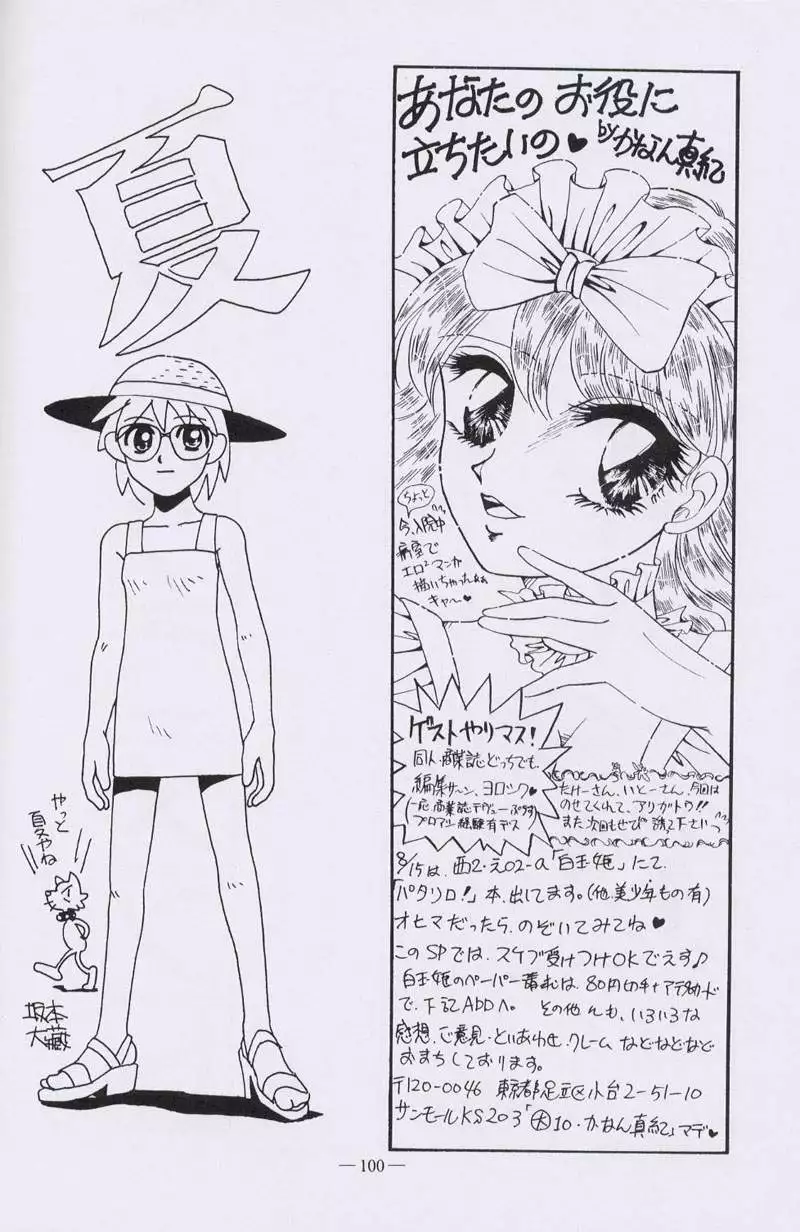 夏
やっと
夏やね
坂本
大蔵
あなたの お役に
立ちたいの♥ byかなん真紀
ちょっと
今、入院中
病室で
エロマンガ
描いちゃったよね
キャ〜♥
ゲストやりマス!
同人・商業誌どっちでも。
編集サーン、ヨロシク♥
たけーさん、いとーさん、今回は
のせてくれて、アリガトウ!!
また次回もぜひ 誘って下さいっ
8/15は、西2・え02-a「白玉姫」にて
「パタリロ!」本、出してます。(他、美少年もの有)
オヒマだったら、のぞいてみてね♥
このSPでは、スケブ受けつけOKでえす♪
白玉姫のペーパー希望は、80円切手+アテ名カード
で、下記ADDへ。その他にも、いろいろな
感想、ご意見・といあわせ・クレームなどなどなど
おまちしております。
〒120-0046 東京都足立区小台2-51-10
サンモールKS203「大10・かなん真紀」マデ♥
―100―